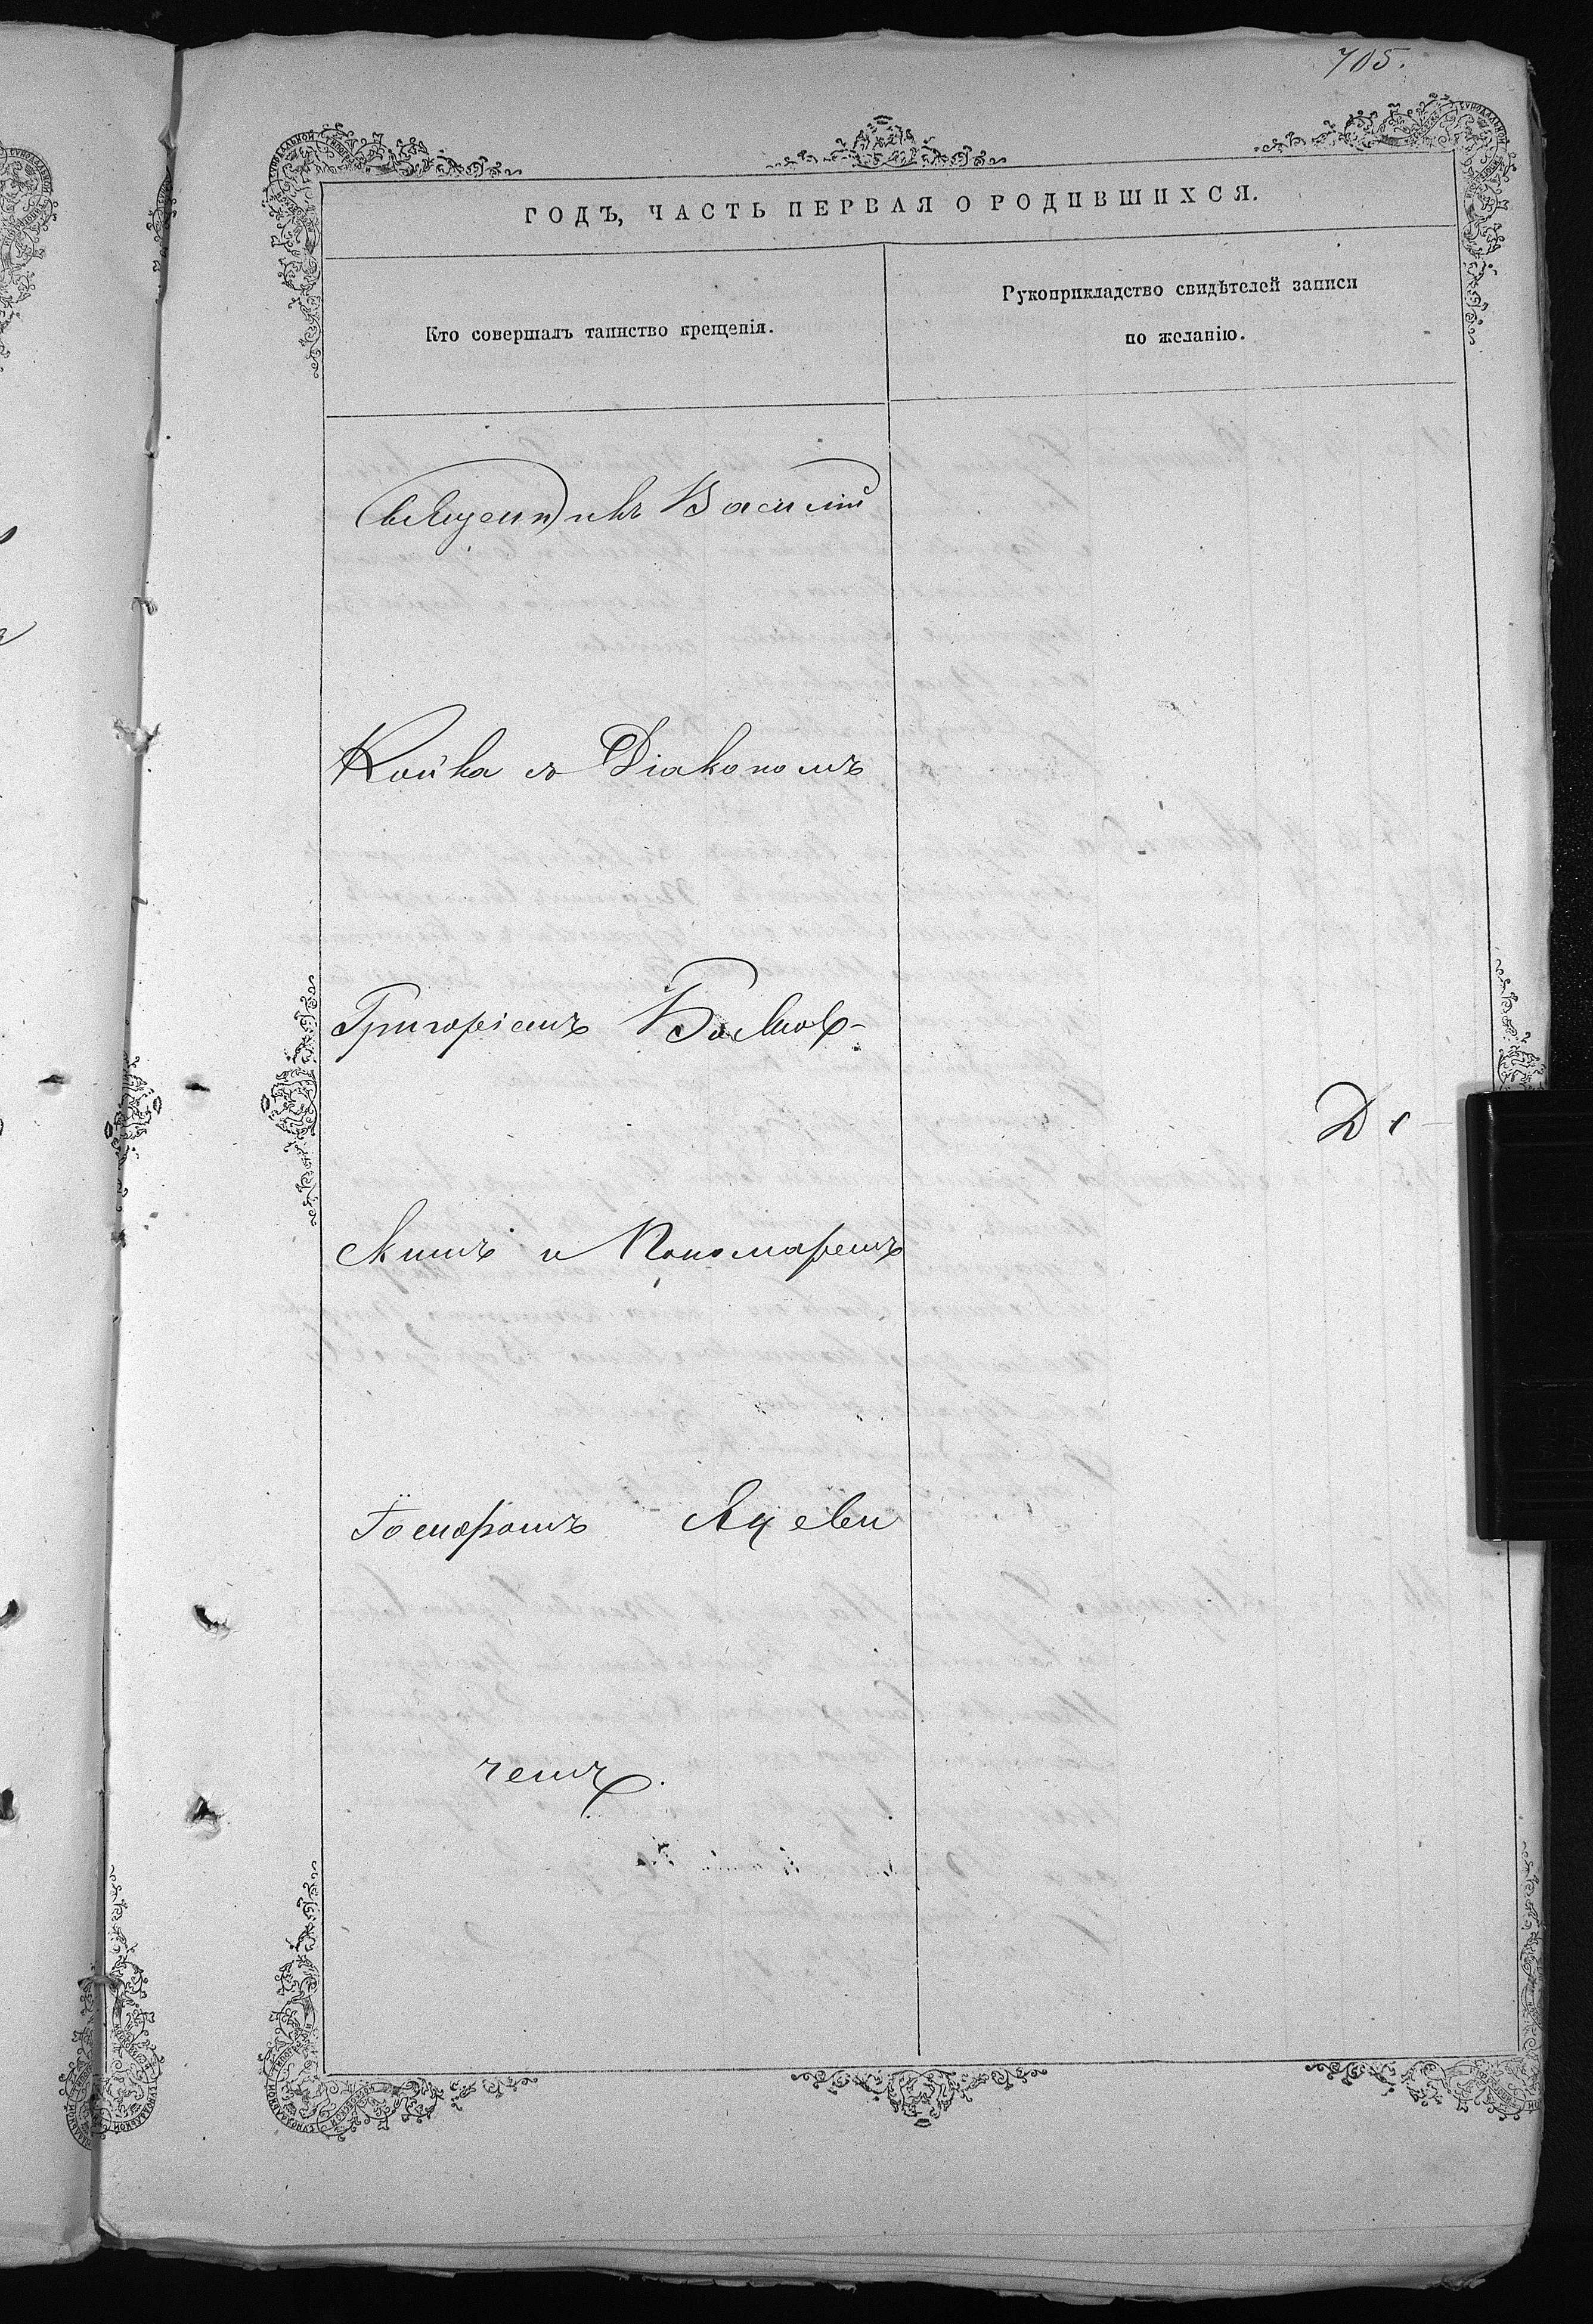 705.
ГОДЪ, ЧАСТЬ ПЕРВАЯ О РОДИВШИХСЯ.
Кто совершалъ таинство крещенія.
Рукоприкладство свидѣтелей записи
по желанію.
Священникъ Василій
Койка съ Діакономъ
Григоріемъ
и Пономаремъ
Яцеви
чемъ.